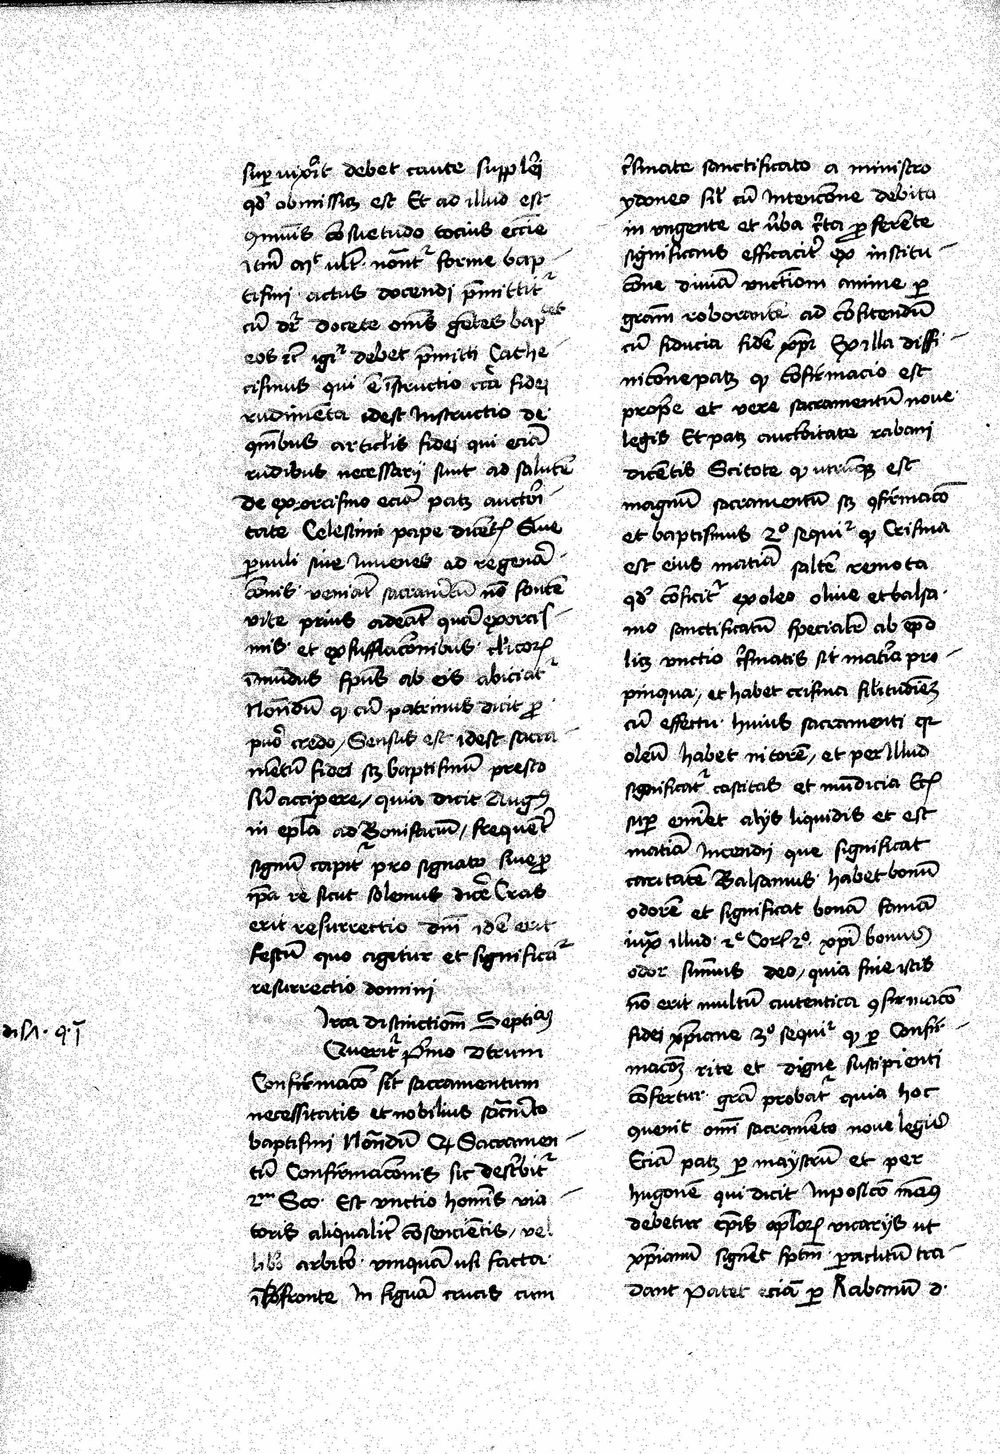 super uixerit debet caute supplẽi
qd' obmissum est Et ad illud est
9mũis cõsuetudo tocius ecclẽie
tismi actus docendi p̃mittit᷑
cũ dr̃ docete om̃s gẽtes bap
eos ꝛc̃ igi᷑ debet p̃mitti Cathe
cismus qui ẽ ĩstructio c̃ca fidei
rudimẽta idest Instructio de
qũibus articlis fidei qui eciã
rudibus necessarij sunt ad salutẽ
de exorcismo eciã patꝫ auctoi
tate Celestini pape dicẽtꝭ Siue
ꝑuuli siue Iuuenes ad regenã
cõnis veniãt sacramẽtũ nõ fontẽ
vite prius adeãt quã exorcis
mis et exsufflacõnibus cl'icoꝝ
ĩmũdus sp̃us ab eis abiciat᷑
Notãdũ ꝙ cũ patrinus dicit ꝓ
puo credo / Sensus est idest sacra
mẽtũ fidei sꝫ baptismũ presto
sũ accipere / quia dicit Augꝰ
in ep̃la ad Bonifaciũ / frequent̃
signũ capit᷑ pro signato siue ꝓ
ip̃a re sicut solemus dicẽ Cras
erit resurrectio dñi idẽ erit
festũ quo agetur et significa᷑
resurrectio domini
Irca distinctiõm Septiã
Querit᷑ p̃mo Utrum
Confirmacõ sit sacramentum
necessitatis et nobilius sac̃mẽto
baptismi Notãdũ ꝙ Sacramen
tũ Confirmacõnis sic descibit᷑
2m Sco Est vnctio homĩs via
toris aliqualit̃ cõsencientis / vel
lib̃o arbitõ vmquã vsi facta
fronte In figurã crucis cum
dist · q · ĩ
c̃smate sanctificato a ministro
ydoneo sil' cũ Intencõne debita
in vngente et ũba c̃ta ꝓferẽte
significans efficacit̃ ex institu
cõne diuinã vnctiõem anime ꝑ
gram̃ roborantẽ ad cõfitendũ
cũ fiducia fidẽ xp̃i Ex illa diffi
nicõne patꝫ ꝙ cõfirmacio est
prop̃e et vere sacramentũ noue
legis Et patꝫ auctoitate rabani
dicẽtis Scitote ꝙ utrũqꝫ est
magnũ sacramentũ sꝫ 9firmacõ
et baptismus 2º sequi᷑ ꝙ Crisma
est eius matiã saltẽ remota
qd' cõficit᷑ ex oleo oliue et balsa
mo sanctificatũ specialit̃ ab ep̃o
licꝫ vnctio c̃smatis sit matĩa pro
pinqua / et habet crisma similitudiẽꝫ
cũ effectu huius sacramenti qr
oleũ habet nitorẽ / et per Illud
significat᷑ castitas et mũdicia
sup̃ emĩet alijs liquidis et est
matiã Incendij que significat
caritatẽ Balsamus habet bonũ
odorẽ et significat bonã famã
iux̃ illud 2e Coꝝ 2º xp̃i bonus
odor sumus deo / quia sine istis
nõ erit multũ autentica 9firmacõ
fidei xp̃iane 3º sequi᷑ ꝙ ꝑ Confir̃
macõꝫ rite et digne suscipienti
cõfertur grã probat᷑ quia hoc
9uenit omĩ sacramẽto noue legis
Eciã patꝫ ꝑ magistrũ et per
hugonẽ qui dicit Inposicõ manꝰ
debetur ep̃is ap̃loꝝ vicarijs ut
xp̃ianũ signẽt sp̃m paclitũ tra
dant Patet eciã ꝑ Rabanũ d